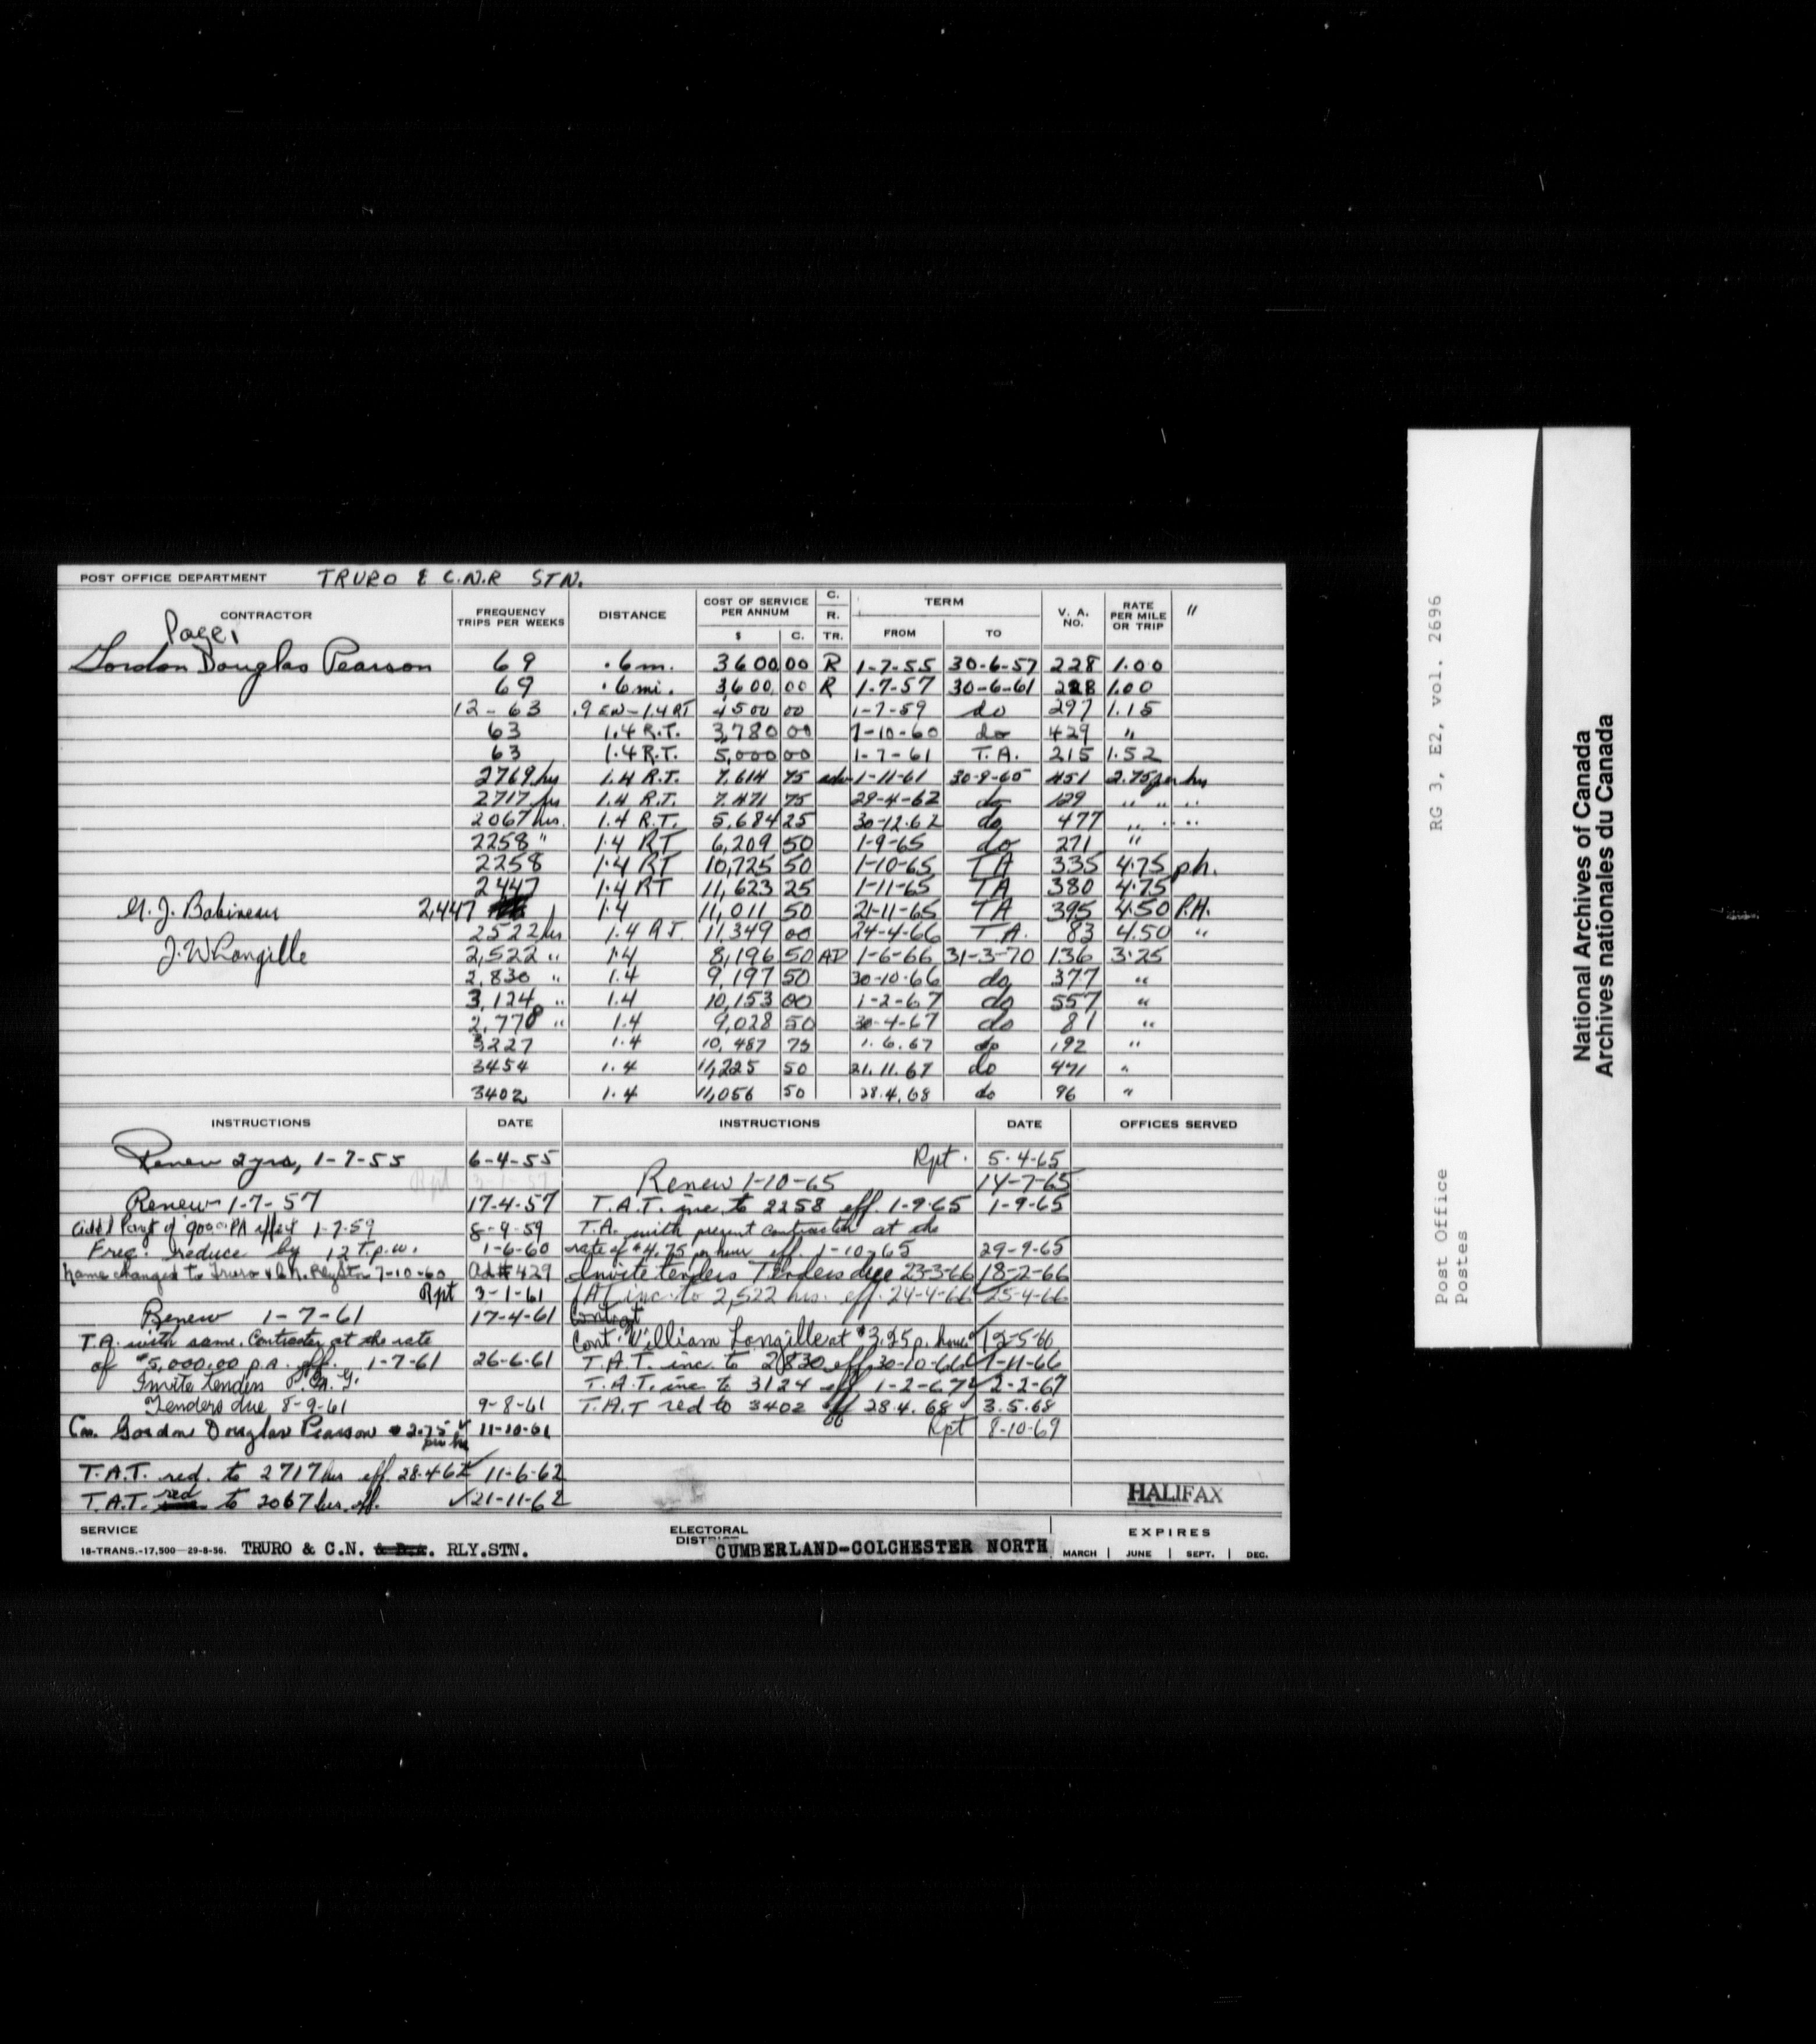 POST OFFICE DEPARTMENT TRURO & C.N.R STN.
CONTRACTOR FREQUENCY TRIPS PER WEEKS DISTANCE COST OF SERVICE PER ANNUM $ C. C. R. TR. TERM FROM TO V. A. NO. RATE PER MILE OR TRIP "
Page 1
Gordon Douglas Pearson 69 .6 m. 3600 00 R 1-7-55 30-6-57 228 1.00
69 .6 mi. 3,600,00 R 1-7-57 30-6-61 228 1.00
12-63 .9 EW-1.4 RT 4500 00 1-7-59 do 297 1.15
63 1.4 R.T. 3,780 00 7-10-60 do 429 "
63 1.4 R.T. 5,000 00 1-7-61 T.A. 215 1.52
2769 hrs 1.4 R.T. 7,614 75 adv 1-11-61 30-9-65 451 2.75 per hr
2717 hrs 1.4 R.T. 7,471 75 29-4-62 do 129 " " "
2067 hrs. 1.4 R.T. 5,684 25 30-12-62 do 477 " " "
2258 " 1.4 RT 6,209 50 1-9-65 do 271 "
2258 1.4 RT 10,725 50 1-10-65 TA 335 4.75 ph.
2447 1.4 RT 11,623 25 1-11-65 TA 380 4.75
G. J. Babineau 2,447 1.4 11,011 50 21-11-65 TA 395 4.50 P.H.
2522 hrs 1.4 R.T. 11,349 00 24-4-66 T.A. 83 4.50 "
J. W Langille 2,522 " 1.4 8,196 50 AD 1-6-66 31-3-70 136 3.25
2,830 " 1.4 9,197 50 30-10-66 do 377 "
3,124 " 1.4 10,153 00 1-2-67 do 557 "
2,778 " 1.4 9,028 50 30-4-67 do 81 "
3227 1.4 10,487 75 1.6.67 do 192 "
3454 1.4 11,225 50 21.11.67 do 471 "
3402 1.4 11,056 50 28.4.68 do 96 "
INSTRUCTIONS DATE INSTRUCTIONS DATE OFFICES SERVED
Renew 2 yrs, 1-7-55 6-4-55 Rpt. 5-4-65
Rpt 3-1-57 Renew 1-10-65 14-7-65
Renew 1-7-57 17-4-57 T.A.T. inc. to 2258 eff. 1-9-65 1-9-65
Add'l Payt of 900.00 PA effect 1-7-59 8-9-59 T.A. with present contractor at the
Freq. reduce by 12 T.p.w. 1-6-60 rate of $4.75 per hour eff. 1-10-65 29-9-65
Name changed to Truro & C.N. Rly Stn 7-10-60 Ad # 429 Invite tenders Tenders due 23-3-66 18-2-66
Rpt 3-1-61 TAT inc. to 2,522 hrs. eff. 24-4-66 25-4-66
Renew 1-7-61 17-4-61 Contract
T.A. with same Contractor at the rate Cont. William Langille at $3.25 p. hour 12-5-66
of $5,000.00 p.a. eff. 1-7-61 26-6-61 T.A.T. inc. to 2830 eff 30-10-66 1-11-66
Invite tenders T.A.T. inc to 3124 eff 1-2-67 2-2-67
Tenders due 8-9-61 9-8-61 T.A.T red to 3402 eff 28.4.68 3.5.68
Con. Gordon Douglas Pearson @ 2.75 per hr 11-10-61 Rpt 8-10-69
T.A.T. red. to 2717 hrs eff. 28-4-62 11-6-62
T.A.T. red to 2067 hrs. eff. ✓ 21-11-62
HALIFAX
SERVICE ELECTORAL DISTRICT EXPIRES
18-TRANS.-17,500-29-8-56. TRURO & C.N. & D.A. RLY.STN. CUMBERLAND-COLCHESTER NORTH MARCH | JUNE | SEPT. | DEC.
RG 3, E2, vol. 2696
Post Office
Postes
National Archives of Canada
Archives nationales du Canada